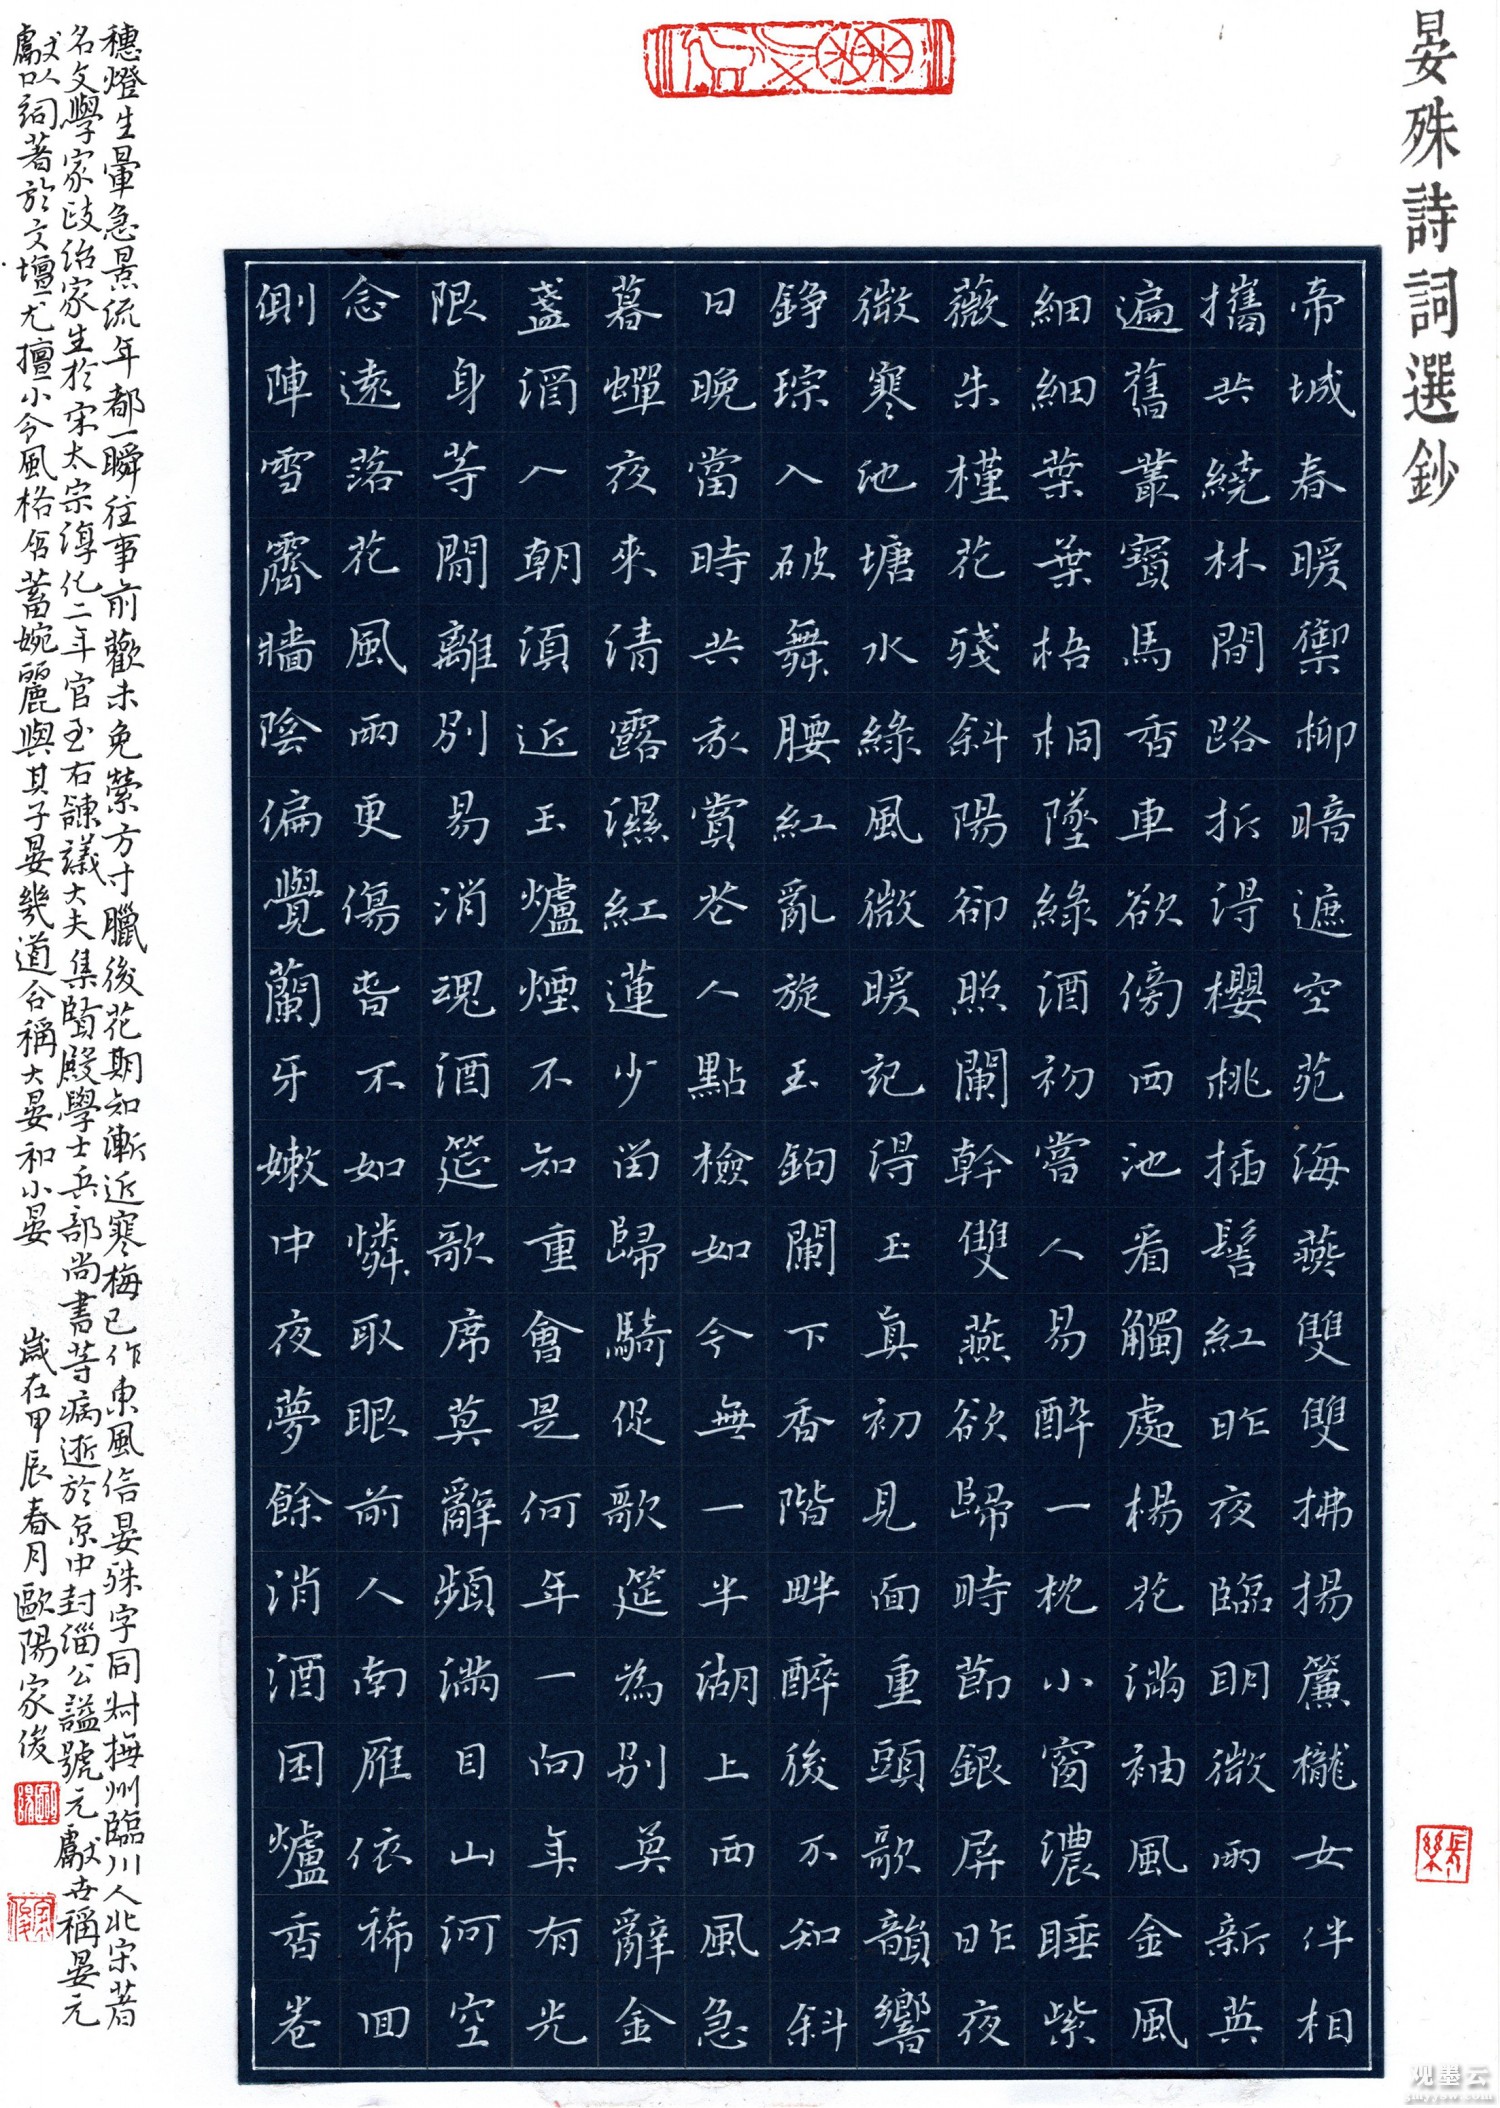 晏殊詩詞選鈔
帝城春暖禦柳暗遮空苑海燕雙雙拂揚簾櫳女伴相
攜共繞林間路折得櫻桃插髻紅昨夜臨明微雨新英
遍舊叢寶馬香車欲傍西池看觸處楊花滿袖風金風
細細葉葉梧桐墜綠酒初嘗人易醉一枕小窗濃睡紫
薇朱槿花殘斜陽卻照闌幹雙燕欲歸時節銀屏昨夜
微寒池塘水綠風微暖記得玉真初見面重頭歌韻響
錚琮入破舞腰紅亂旋玉鉤闌下香階畔醉後不知斜
日晚當時共我賞花人點檢如今無一半湖上西風急
暮蟬夜來清露濕紅蓮少留歸騎促歌筵為別莫辭金
盞酒入朝須近玉爐煙不知重會是何年一向年有光
限身等閒離別易消魂酒筵歌席莫辭頻滿目山河空
念遠落花風雨更傷春不如憐取眼前人南雁依稀回
側陣雪霽牆陰偏覺蘭牙嫩中夜夢餘消酒困爐香卷
穗燈生暈急景流年都一瞬往事前歡未免縈方寸臘後花期知漸近寒梅已作東風信晏殊字同叔撫州臨川人北宋著
名文學家政治家生於宋太宗淳化二年官至右諫議大夫集賢殿學士兵部尚書等病逝於京中封淄公謚號元獻世稱晏元
獻以詞著於文壇尤擅小令風格含蓄婉麗與其子晏幾道合稱大晏和小晏 歲在甲辰春月歐陽家俊
歐陽
家俊
長樂
观墨云